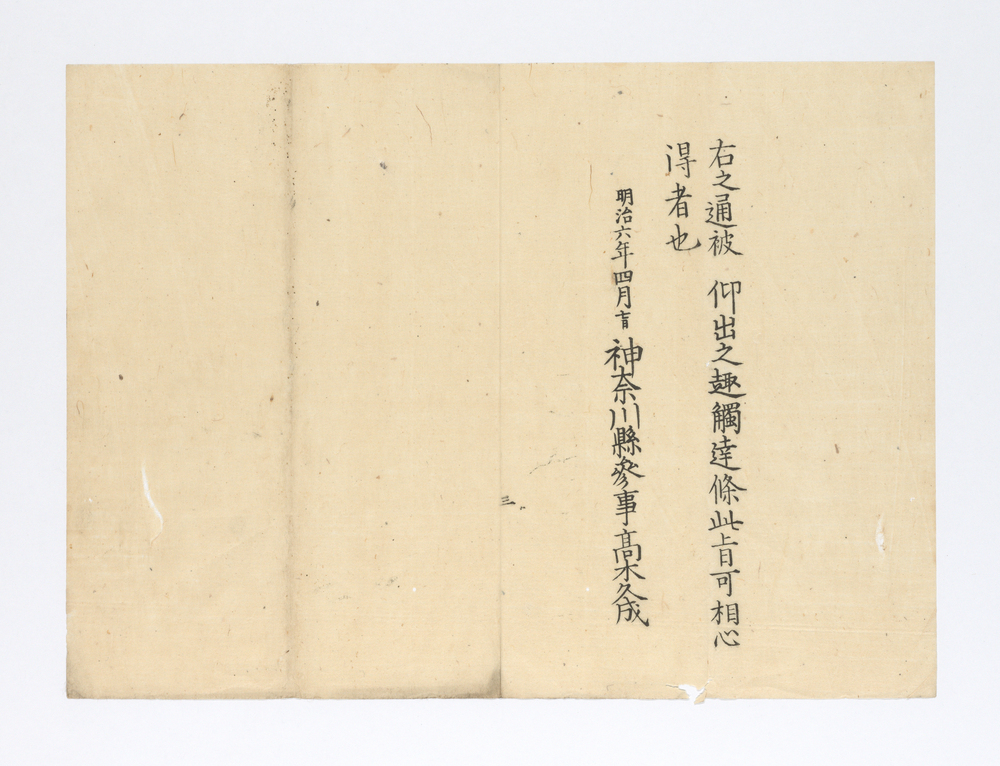 右之通被　仰出之趣觸達條此旨可相心
得者也
明治六年四月十日　神奈川縣參事高木久成
三